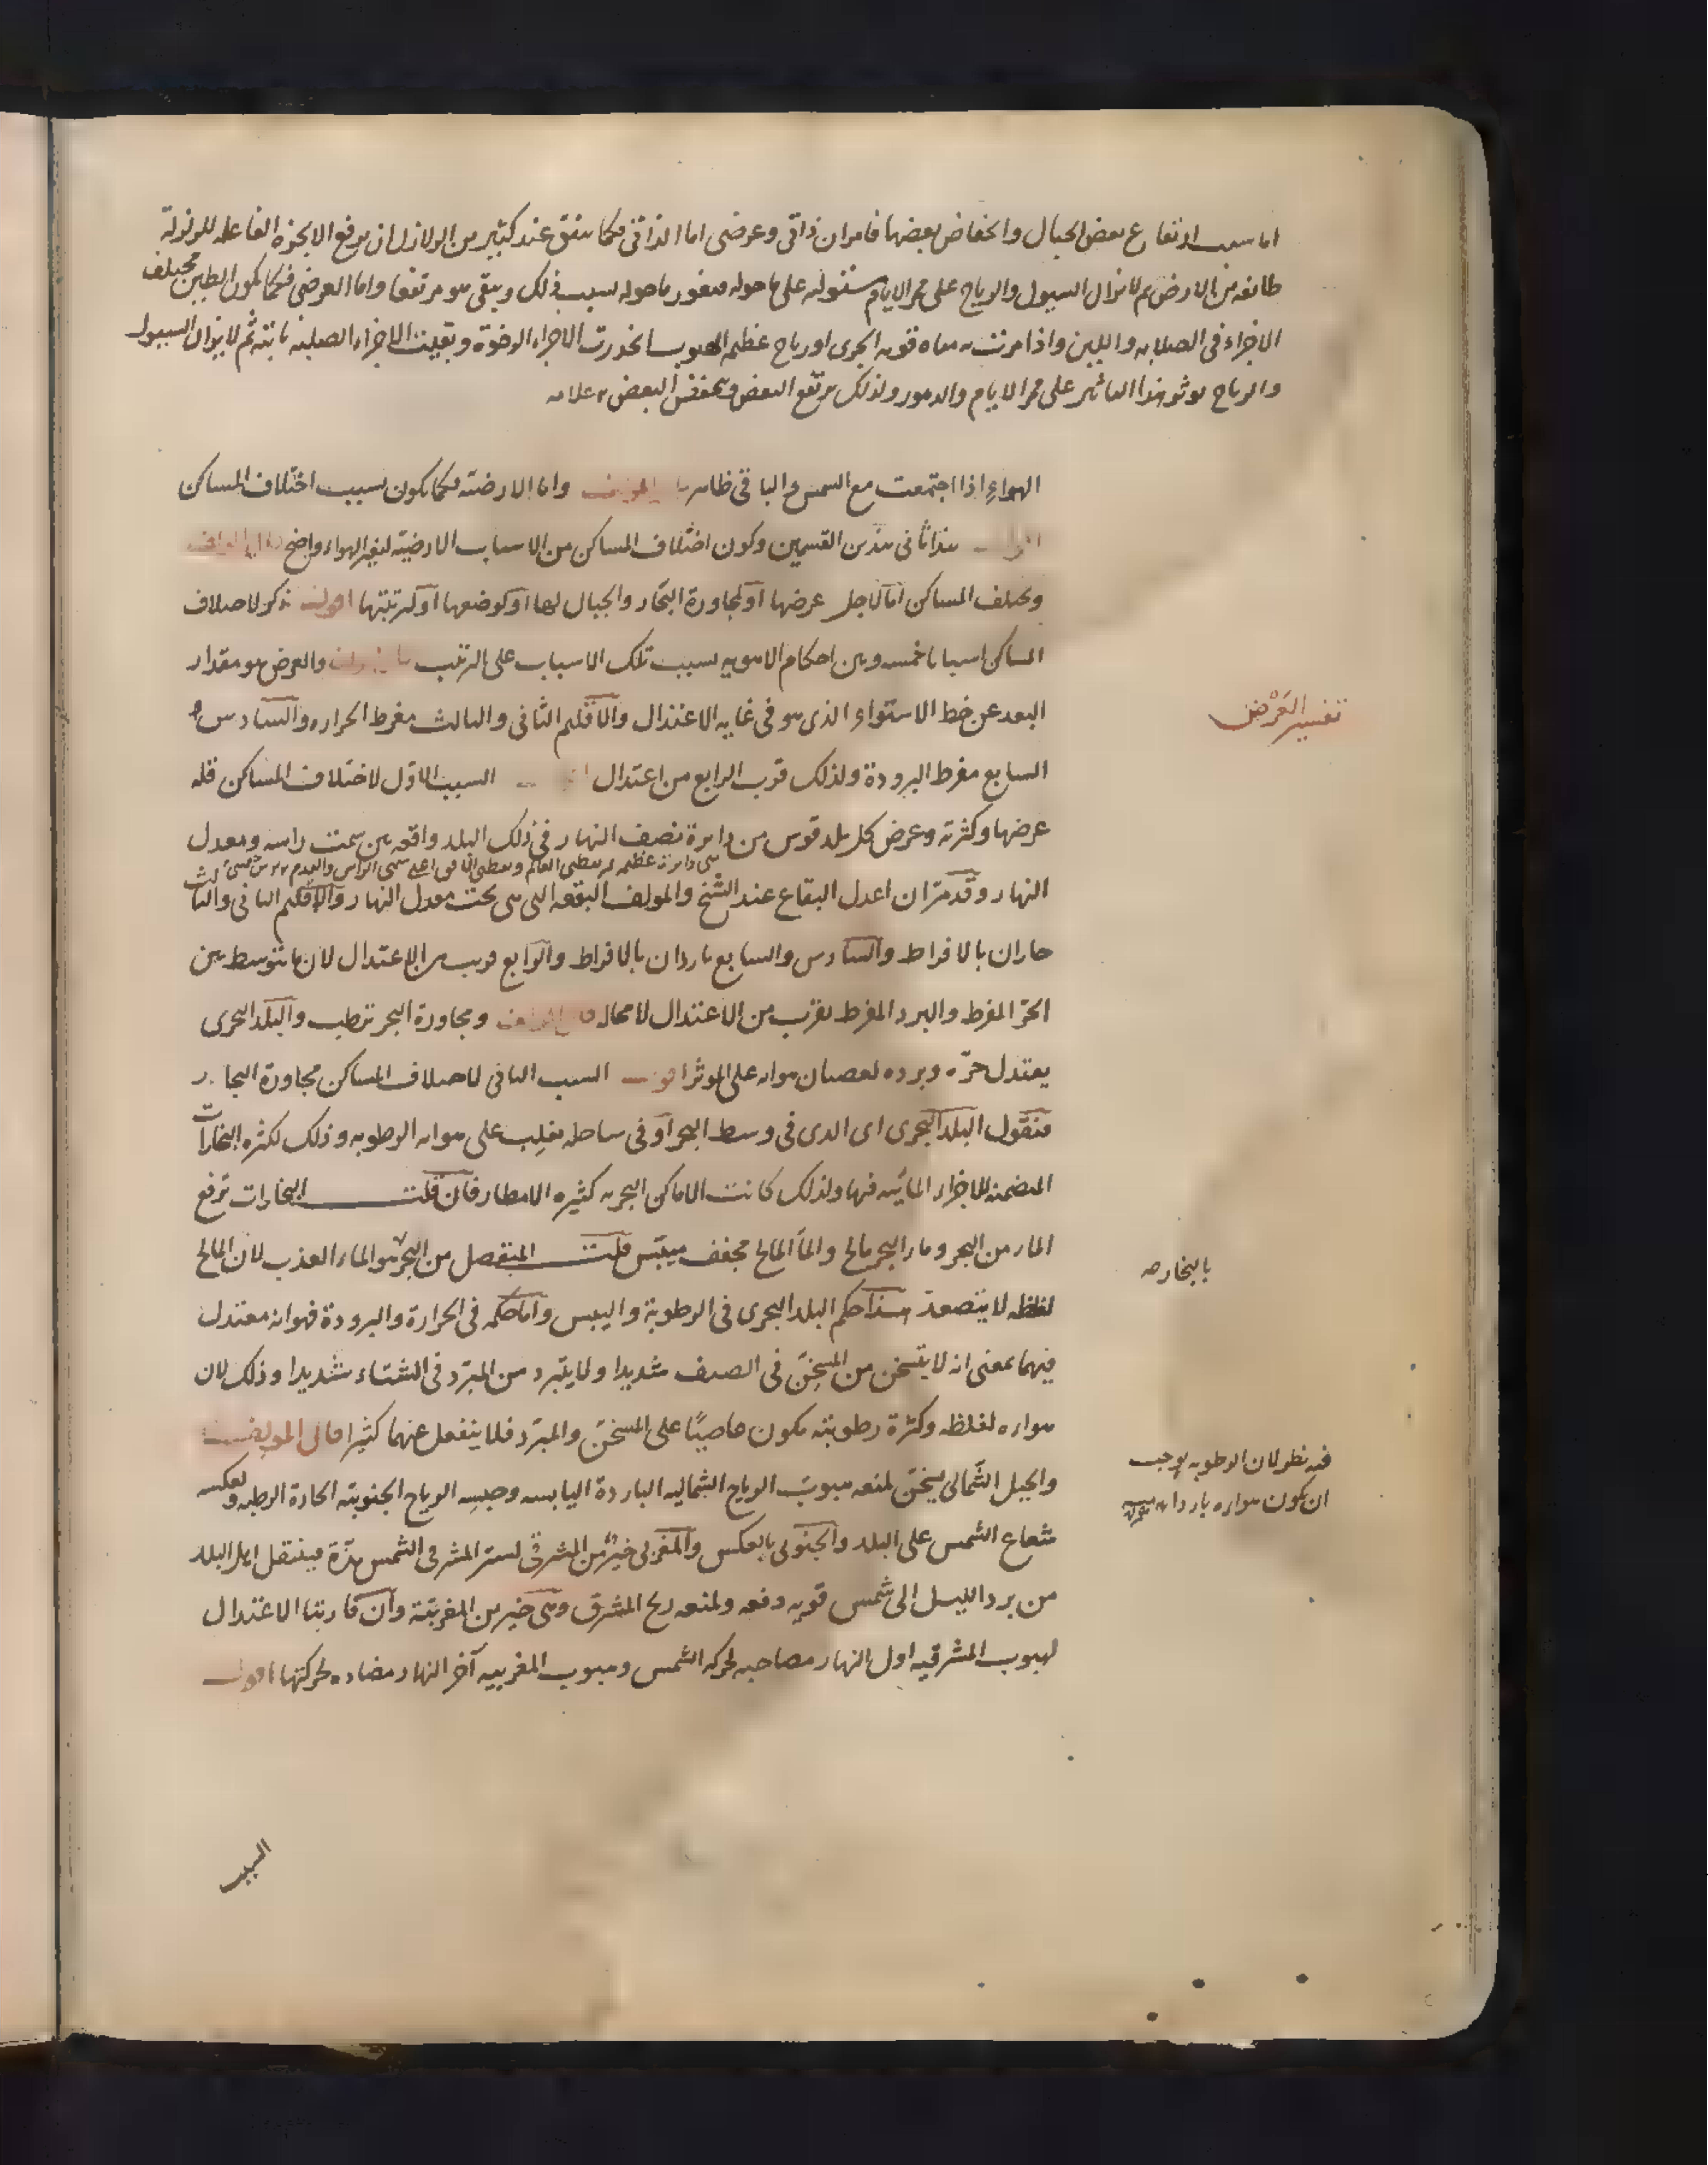 اما سبب ارتفاع بعض الجبال وانخفاض بعضها فامران ذاتى وعرضى اما الذاتى فكما يتفق عند كثير من الزلازل ان يرفع الابخرة الفاعله للزلزلة
طائفه من الارض ثم لا تزال السيول والرياح على ممر الايام مستوليه على ما حوله فيغور ما حوله بسبب ذلك ويبقى هو مرتفعا واما العرضى فكما يكون الطين مختلف
الاجزاء فى الصلابه واللين واذا مرت به مياه قويه الجرى او رياح عظيمه الهبوب انحدرت الاجزاء الرخوة وبقيت الاجزاء الصلبه ثابته ثم لا يزال السيول
والرياح يوثر هذا التاثير على ممر الايام والدهور ولذلك يرتفع البعض وينخفض البعض
الهواء اذا اجتمعت مع الشمس والباقى ظاهر المولف واما الارضيه فكما يكون بسبب اختلاف المساكن
اقول هذا ثانى هذين القسمين وكون اختلاف المساكن من الاسباب الارضية لتغير الهواء واضح قال المولف
ويختلف المساكن اما لاجل عرضها او لمجاورة البحار والجبال لها او لوضعها او لتربتها اقول ذكر لاختلاف
المساكن اسبابا خمسه وبين احكام الاهويه بسبب تلك الاسباب على الترتيب والعرض هو مقدار
البعد عن خط الاستواء الذى هو فى غايه الاعتدال والاقليم الثانى والثالث مفرط الحراره والسادس و
السابع مفرط البرودة ولذلك قرب الرابع من اعتدال السبب الاول لاختلاف المساكن قله
عرضها وكثرته وعرض كل بلد قوس من دايرة نصف النهار فى ذلك البلد واقعه بين سمت راسه ومعدل
هى دايرة عظيمه تمر بقطبى العالم
النهار وقد مر ان اعدل البقاع عند الشيخ والمولف البقعه التى هى تحت معدل النهار والاقليم الثانى والثالث
حاران بالافراط والسادس والسابع باردان بالافراط والرابع قريب من الاعتدال لان ما يتوسط بين
الحر المفرط والبرد المفرط يقرب من الاعتدال لا محاله قال المولف ومجاورة البحر ترطب والبلد البحرى
يعتدل حرّه وبرده لعصيان هوائه على الموثر اقول السبب الثانى لاختلاف المساكن مجاورة البحار
فنقول البلد البحرى اى الذى فى وسط البحر او فى ساحله يغلب على هوائه الرطوبه وذلك لكثره البخارات
المتضمنه للاجزاء المائيه فيها ولذلك كانت الاماكن البحريه كثيره الامطار فان قلت البخارات ترفع
الماء من البحر وماء البحر مالح والماء المالح مجفف ميبس قلت المنفصل من البحر هو الماء العذب لان المالح
لغلظه لا يتصعد هذا حكم البلد البحرى فى الرطوبة واليبس واما حكمه فى الحرارة والبرودة فهوائه معتدل
فيهما بمعنى انه لا يتسخن من المسخن فى الصيف شديدا ولا يتبرد من المبرد فى الشتاء شديدا وذلك لان
هواءه لغلظه وكثرة رطوبته يكون عاصيًا على المسخن والمبرد فلا ينفعل عنهما كثيرا قال المولف
والجبل الشمالى يسخن لمنعه هبوب الرياح الشماليه الباردة اليابسه وحبسه الرياح الجنوبيه الحادة الرطبه ولعكسه
شعاع الشمس على البلد والجنوبى بالعكس والمغربى خير من المشرقى لستر المشرقى الشمس مدة فينتقل اهل البلد
من برد الليل الى شمس قويه دفعه ولمنعه ريح المشرق وهى خير من المغربية وان قاربتا الاعتدال
لهبوب المشرقيه اول النهار مصاحبه لحركه الشمس وهبوب المغربيه آخر النهار مضاده لحركتها اقول
السبب
تفسير العَرْض
بالبخار صه
فيه نظر لان الرطوبه يوجب
ان يكون هواءه باردا